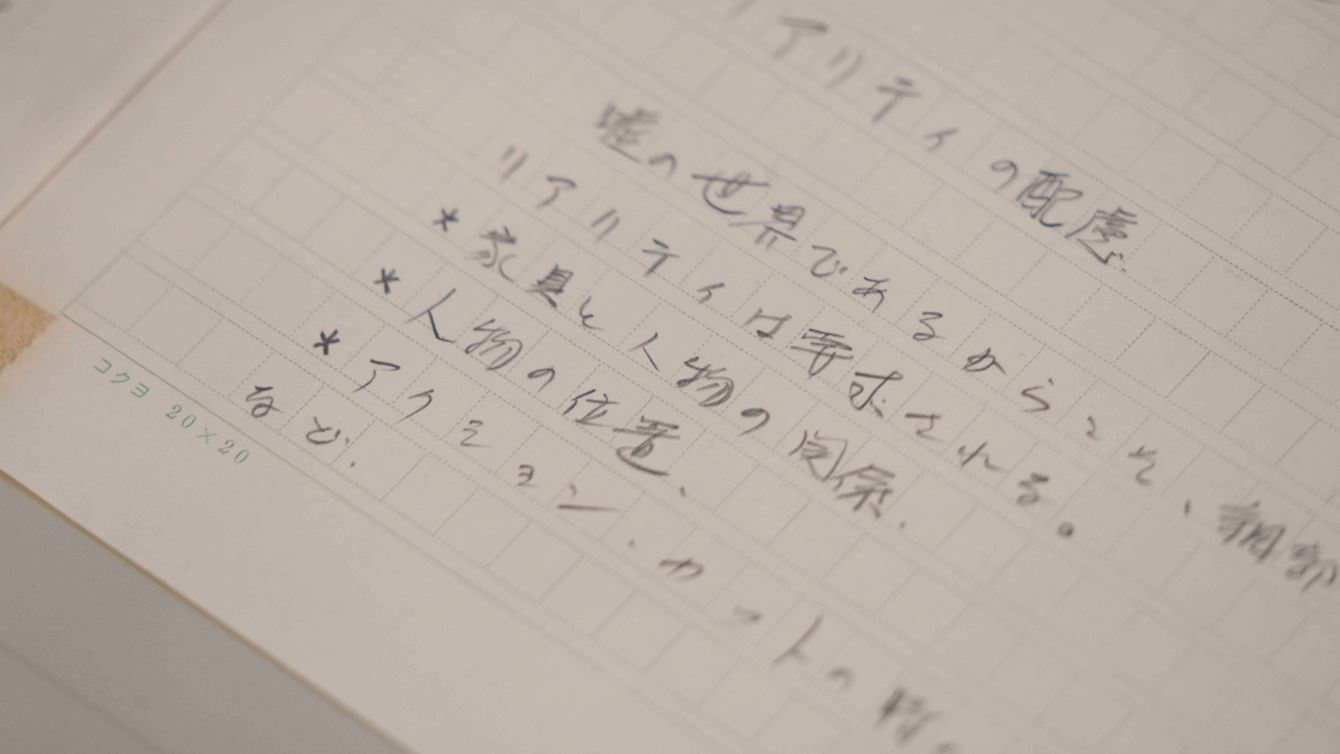 アリティの配慮.
嘘の世界であるからこそ、細部
リアリティは要求される。
* 家具と人物の関係.
* 人物の位置、
* アクション、カットの時の
など.
コクヨ 20×20